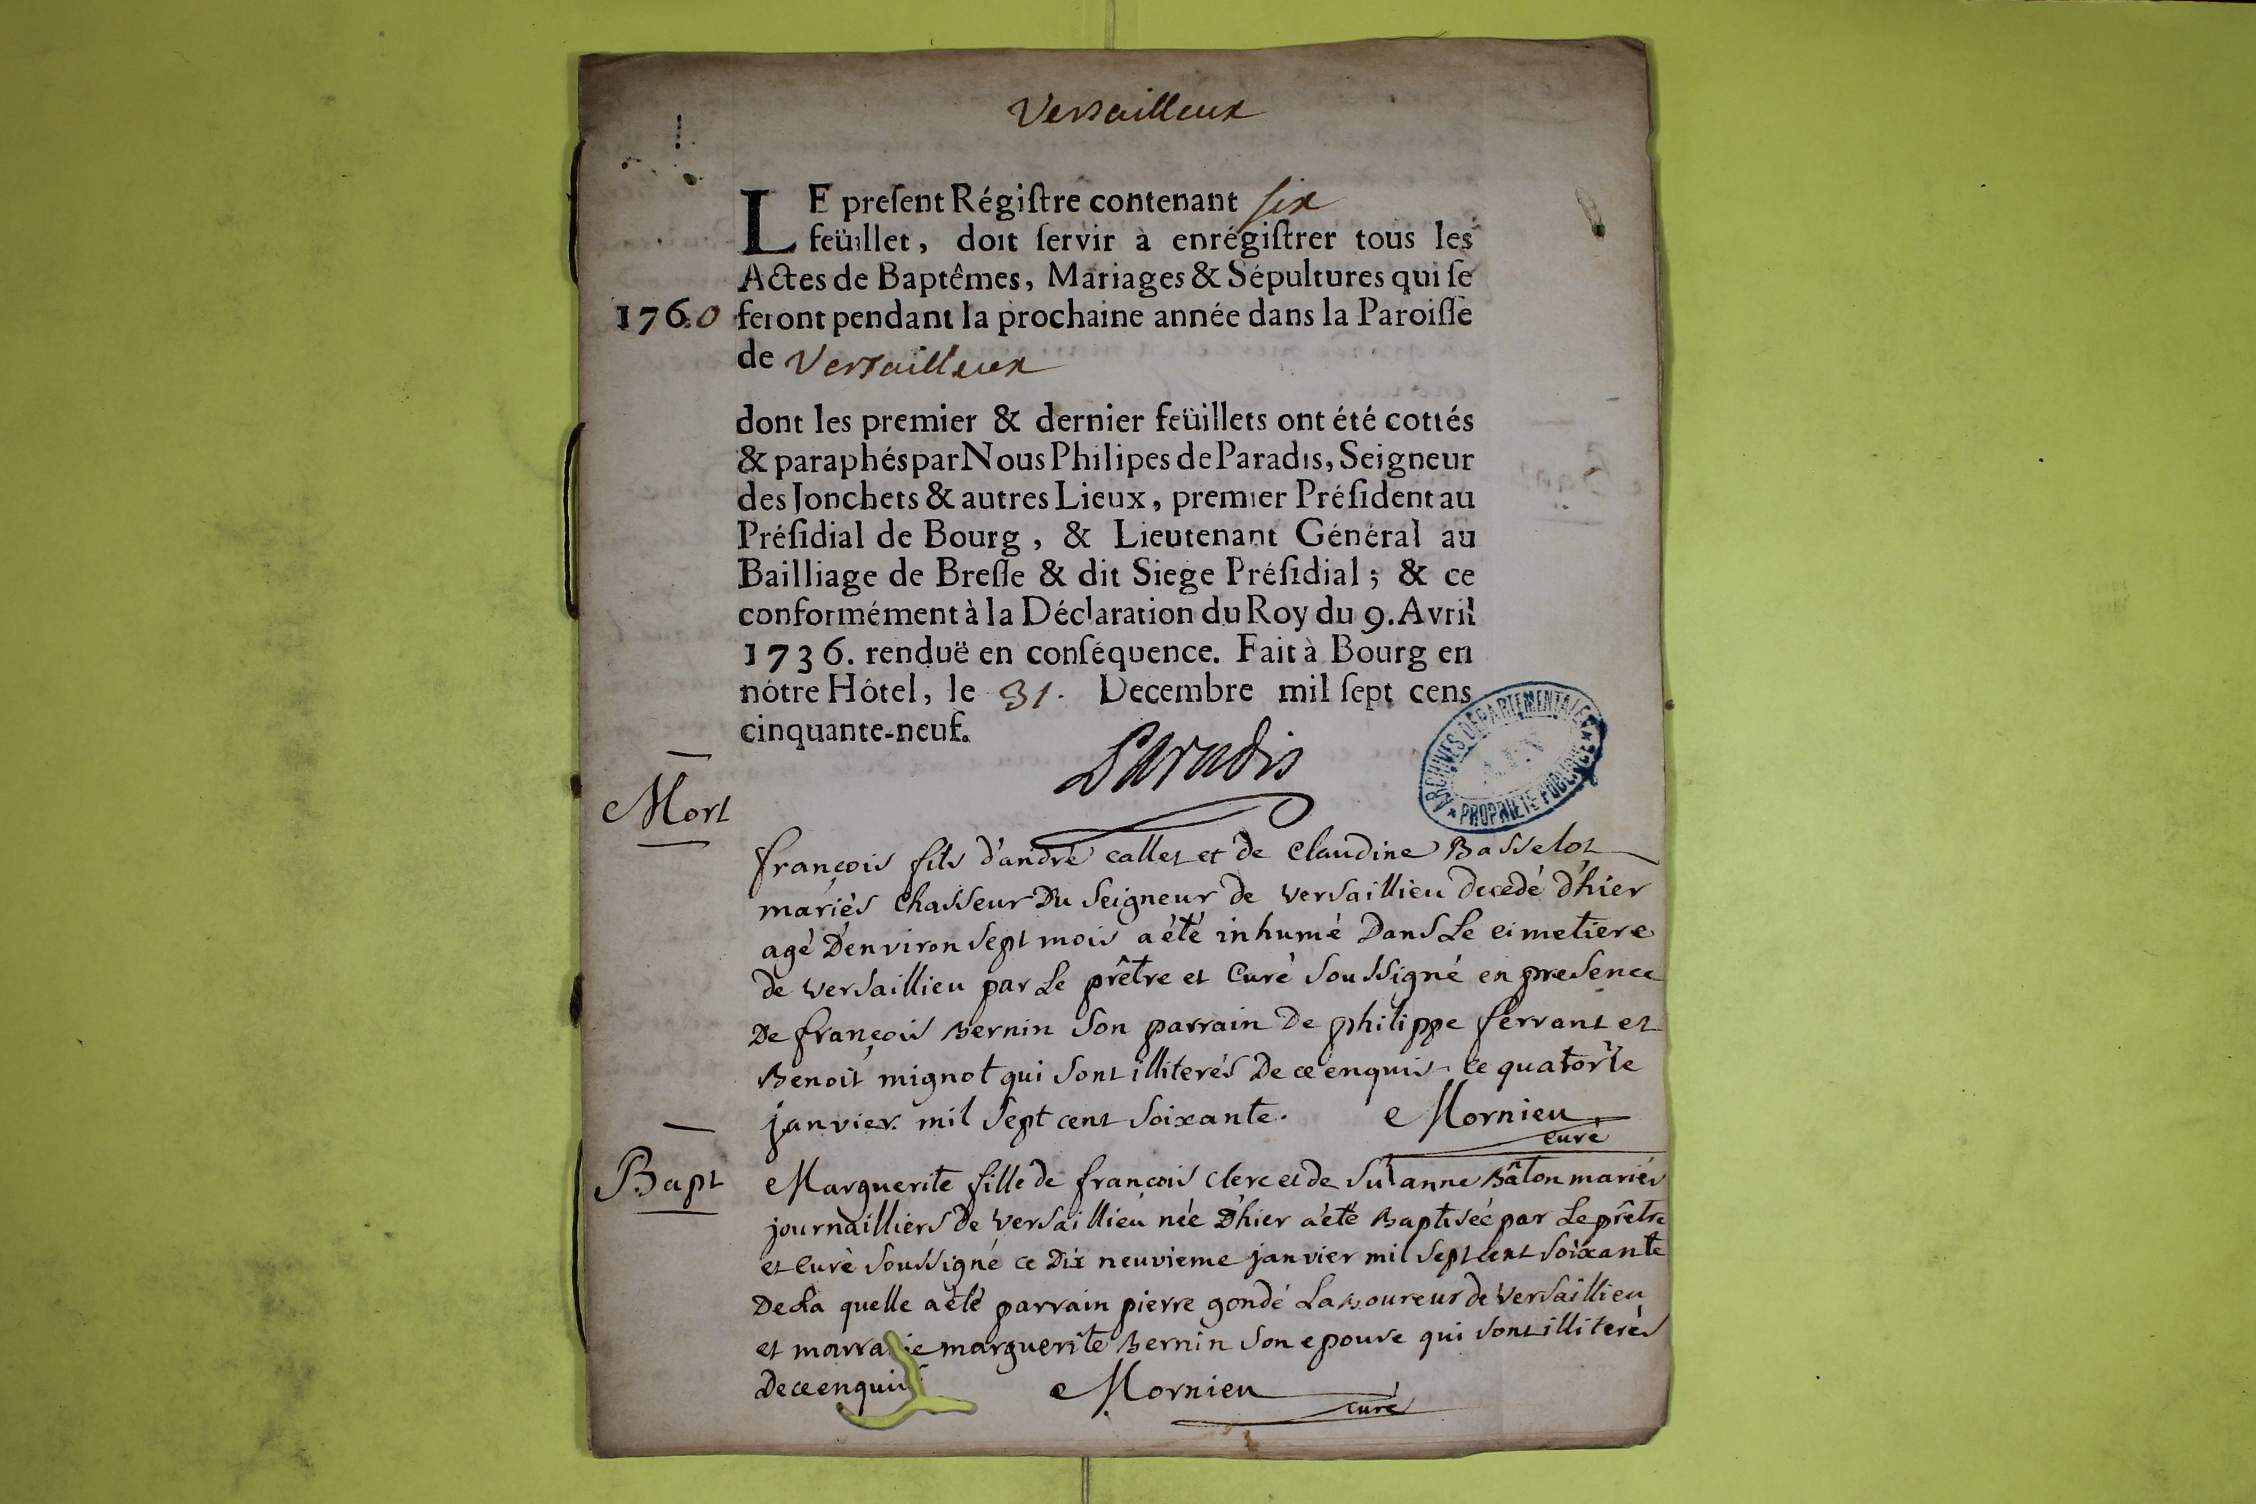 Versailleux
LE preſent Régiſtre contenant six
feüillet, doit ſervir à enrégiſtrer tous les
Actes de Baptêmes, Mariages & Sépultures qui ſe
1760 feront pendant la prochaine année dans la Paroiſſe
de Versailleux
dont les premier & dernier feüillets ont été cottés
& paraphés par Nous Philipes de Paradis, Seigneur
des Jonchets & autres Lieux, premier Préſident au
Préſidial de Bourg, & Lieutenant Général au
Bailliage de Breſſe & dit Siege Préſidial; & ce
conformément à la Déclaration du Roy du 9. Avril
1736. renduë en conſéquence. Fait à Bourg en
nôtre Hôtel, le 31. Decembre mil ſept cens
cinquante-neuf.
Paradis
ARCHIVES DÉPARTEMENTALES
AIN
PROPRIÉTÉ PUBLIQUE
Mort
françois fils d'andré callet et de Claudine Basselot
mariés Chasseur Du Seigneur de Versaillieu decedé d'hier
agé D'environ sept mois a été inhumé Dans Le cimetiere
de Versaillieu par Le prêtre et Curé Soussigné en presence
De françois Bernin son parrain De philippe ferrant et
Benoit mignot qui sont illiterés De ce enquis. ce quatorze
janvier mil sept cent soixante. Mornieu
curé
Bapt
Marguerite fille de françois clerc et de Suzanne Bâton mariés
journailliers de Versaillieu née D'hier a été Baptisée par Le prêtre
et Curé Soussigné ce Dix neuvieme janvier mil sept cent soixante
De La quelle a été parrain pierre gondé Laboureur de Versaillieu
et marraine marguerite Bernin son epouse qui sont illiterés
De ce enquis Mornieu
curé